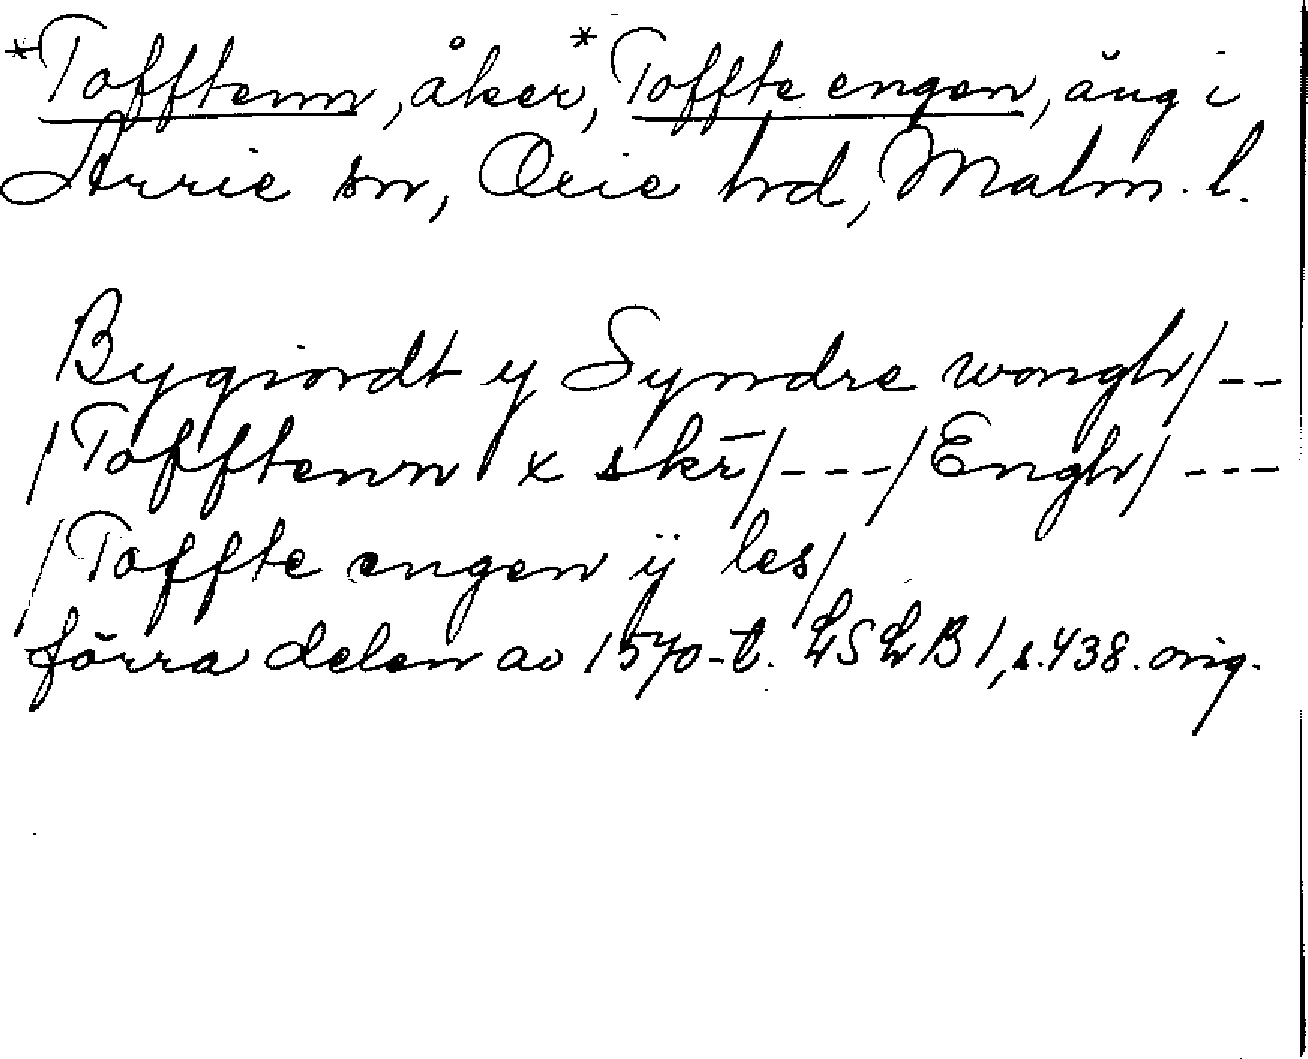 *Tofftenn, åker, *Toffte engen, äng i
Arrie sn, Oxie hrd, Malm. l.
Bygiordt y Syndre wongh/ --
/Tofftenn x skr̄/---/Engh/ ---
/Toffte engen ÿ les/
förra delen av 1570-t. LSLB1, s.438. orig.